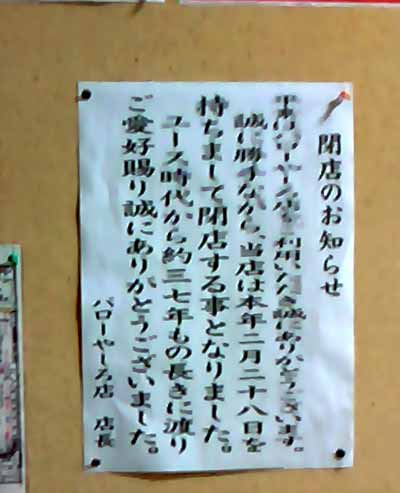 閉店のお知らせ
平素バローやしろ店をご利用いただき誠にありがとうございます。
誠に勝手ながら、当店は本年二月二十八日を
持ちまして閉店する事となりました。
ユース時代から約三七年もの長きに渡り
ご愛好賜り誠にありがとうございました。
バローやしろ店 店長